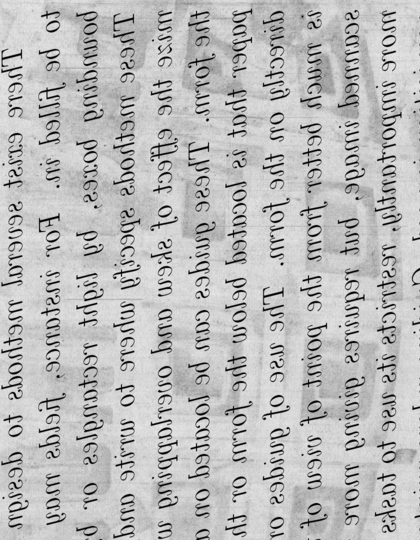 There exist several methods to design
to be filled in. For instance, fields may
bounding boxes, by light rectangles or b
These methods specify where to write and
mize the effect of skew and overlapping w
the form. These guides can be located on a
paper that is located below the form or th
directly on the form. The use of guides o
is much better from the point of view of
scanned image, but requires giving more
more importantly, restricts its use to tasks